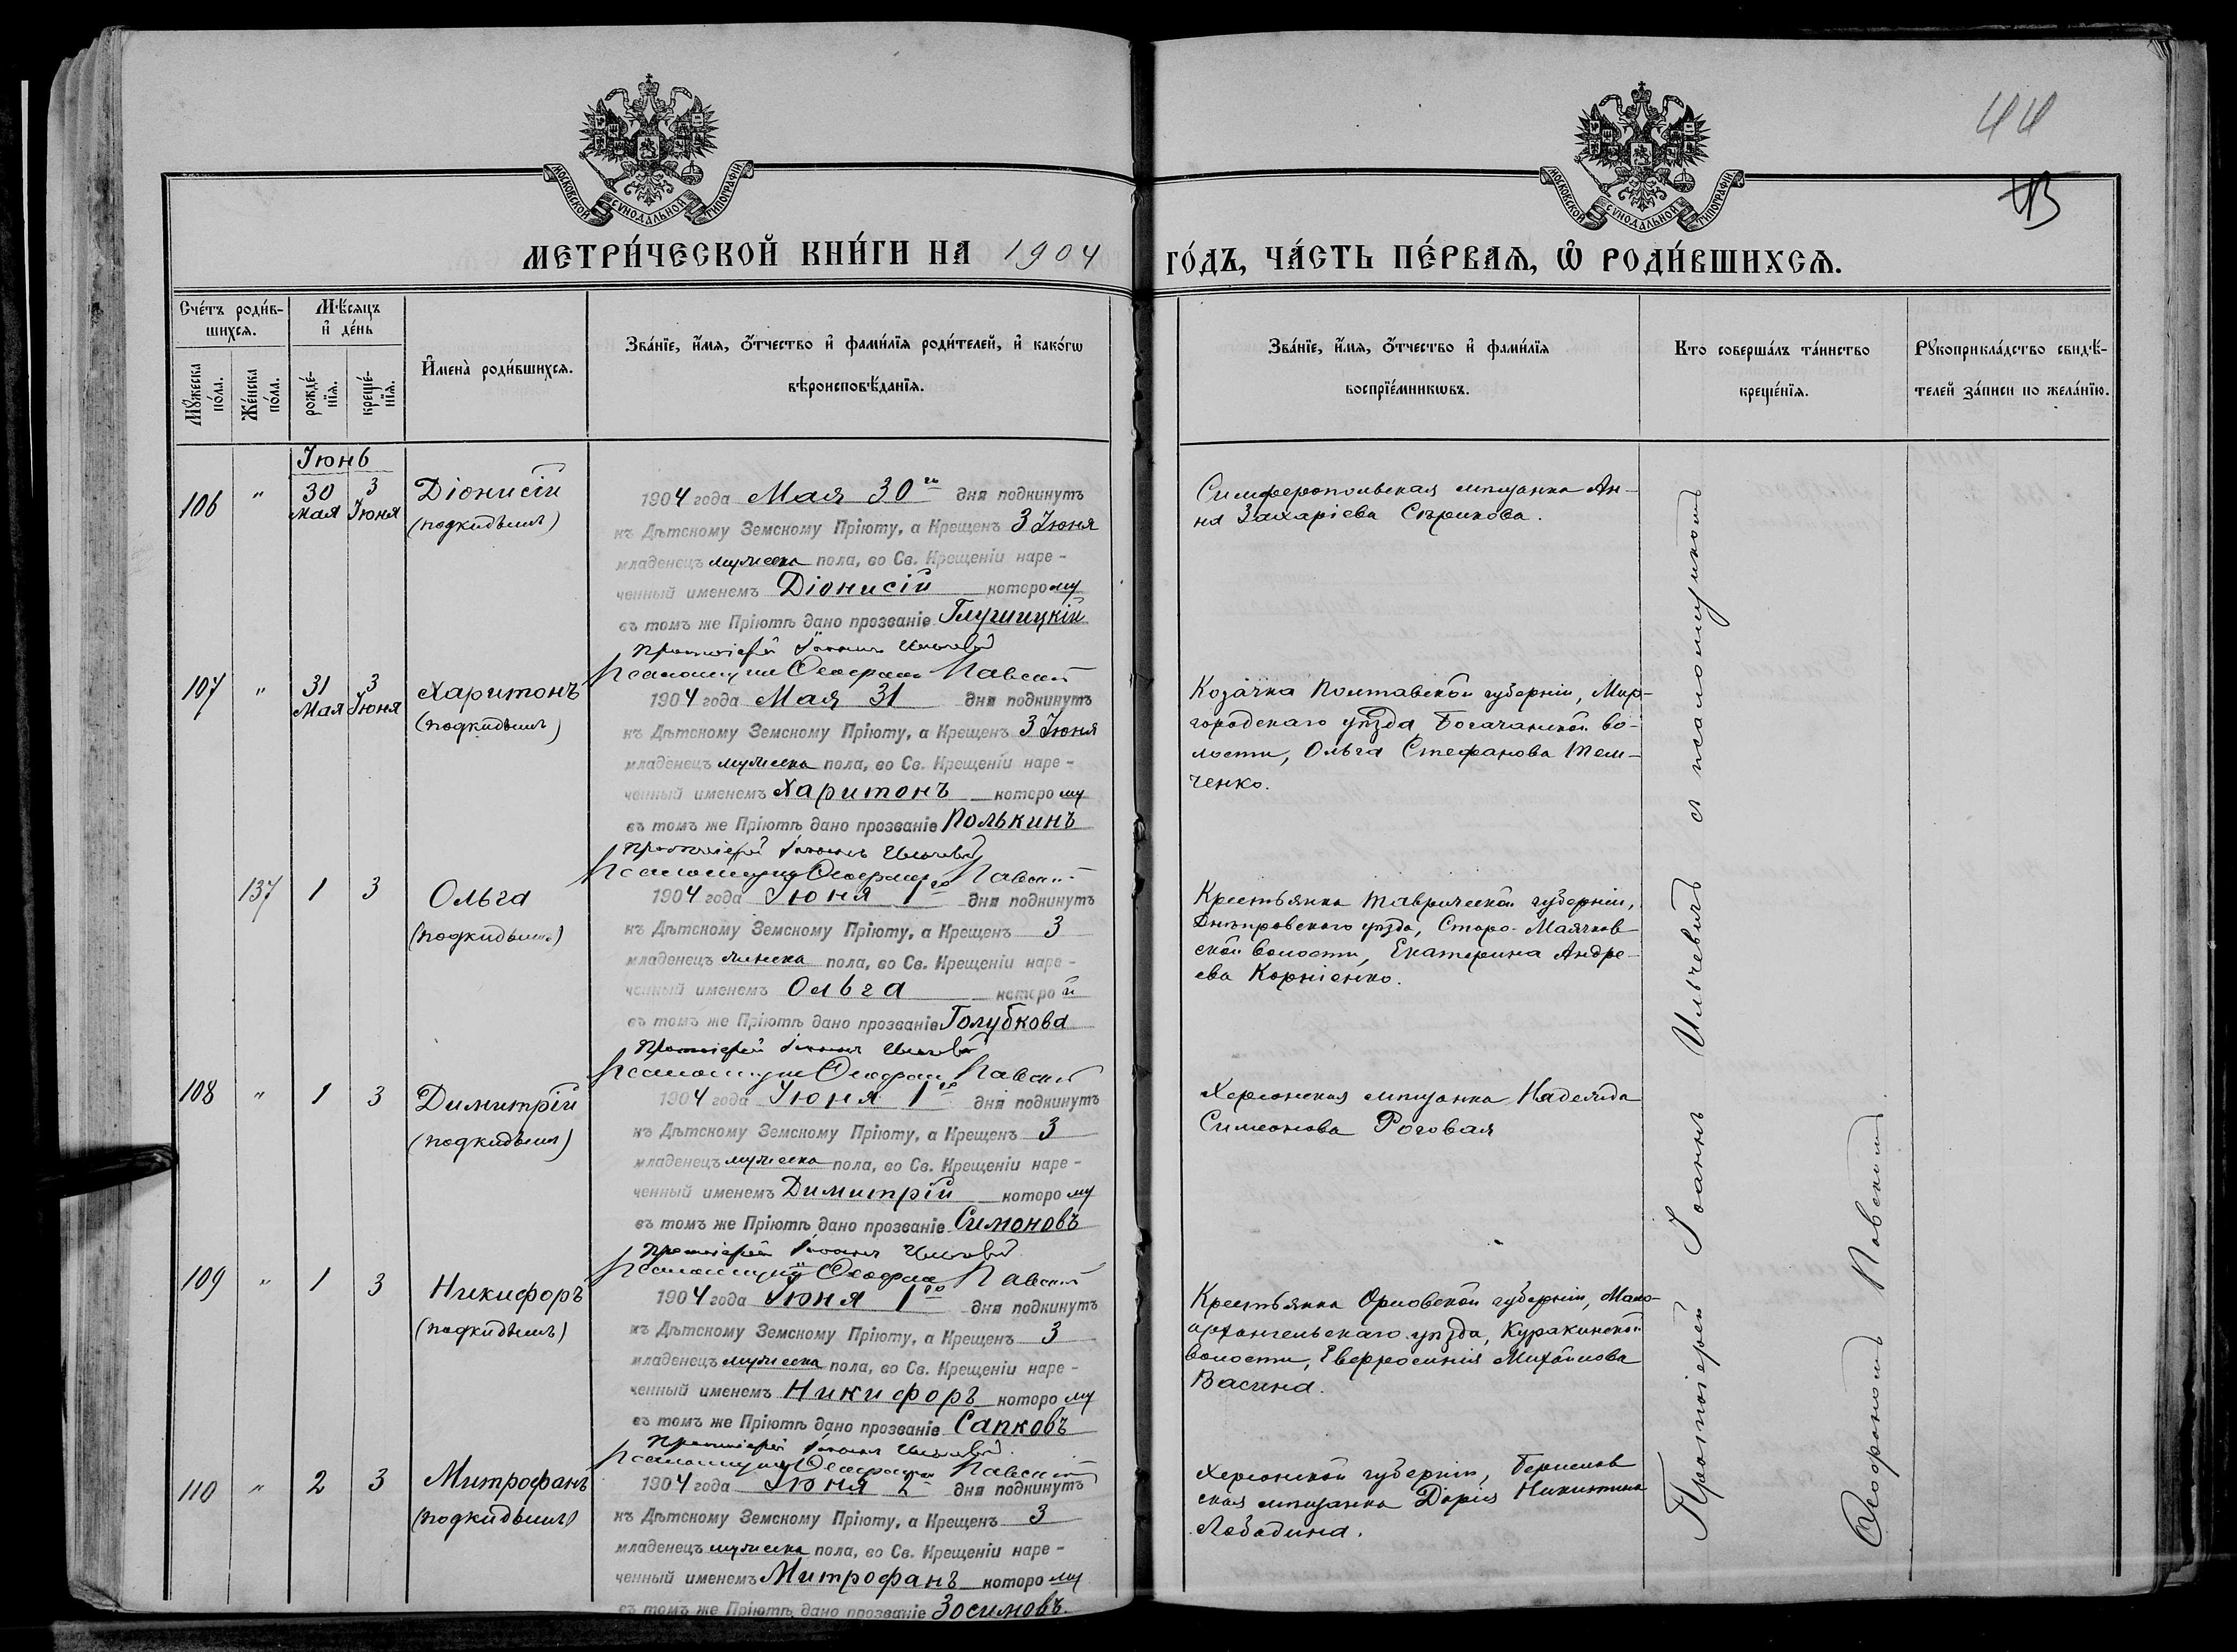 44
МОСКОВСКОЙ СУНОДАЛЬНОЙ ТИПОГРАФІИ
МОСКОВСКОЙ СУНОДАЛЬНОЙ ТИПОГРАФІИ
МЕТРИ́ЧЕСКОЙ КНИ́ГИ НА 1904 ГО́ДЪ, ЧА́СТЬ ПЕ́РВАѦ, Ѡ҆ РОДИ́ВШИХСѦ.
Сче́тъ роди́в-
шихсѧ.
Мꙋ́жеска по́ла.
Же́нска по́ла.
Мѣ́сѧцъ
и҆ де́нь
рожде́-
нїѧ.
креще́-
нїѧ.
И҆мена̀ роди́вшихсѧ.
Зва́нїе, и҆́мѧ, ѻ҆́тчество и҆ фами́лїѧ роди́телей, и҆ како́гѡ
вѣроисповѣ́данїѧ.
Зва́нїе, и҆́мѧ, ѻ҆́тчество и҆ фами́лїѧ
воспрїе́мникѡвъ.
Кто соверша́лъ та́инство
креще́нїѧ.
Рꙋкоприкла́дство свидѣ́-
телей за́писи по жела́нїю.
Іюнь
106 " 30 Мая 3 Іюня
Діонисій
(подкидышъ)
1904 года Мая 30го дня подкинутъ
къ Дѣтскому Земскому Пріюту, а Крещенъ 3 Іюня
младенецъ мужеска пола, во Св. Крещеніи наре-
ченный именемъ Діонисій которому
въ томъ же Пріютѣ дано прозваніе Глушицкій
Протоіерей Іоаннъ Ильчевичъ
Псаломщикъ Ѳеофанъ Павскій
Симферопольская мѣщанка Ан-
на Захаріева Сѣрикова.
107 " 31 Мая 3 Іюня
Харитонъ
(подкидышъ)
1904 года Мая 31 дня подкинутъ
къ Дѣтскому Земскому Пріюту, а Крещенъ 3 Іюня
младенецъ мужеска пола, во Св. Крещеніи наре-
ченный именемъ Харитонъ которому
въ томъ же Пріютѣ дано прозваніе Полькинъ
Протоіерей Іоаннъ Ильчевичъ
Псаломщикъ Ѳеофанъ Павскій
Козачка Полтавской губерніи, Мир-
городскаго уѣзда Богачанской во-
лости, Ольга Стефанова Тем-
ченко.
137 1 3
Ольга
(подкидышъ)
1904 года Іюня 1го дня подкинутъ
къ Дѣтскому Земскому Пріюту, а Крещенъ 3
младенецъ женска пола, во Св. Крещеніи наре-
ченный именемъ Ольга которой
въ томъ же Пріютѣ дано прозваніе Голубкова
Протоіерей Іоаннъ Ильчевичъ
Псаломщикъ Ѳеофанъ Павскій
Крестьянка Таврической губерніи,
Днѣпровского уѣзда, Старо-Маячков
ской волости, Екатерина Андре-
ева Корніенко.
108 " 1 3
Димитрій
(подкидышъ)
1904 года Іюня 1го дня подкинутъ
къ Дѣтскому Земскому Пріюту, а Крещенъ 3
младенецъ мужеска пола, во Св. Крещеніи наре-
ченный именемъ Димитрій которому
въ томъ же Пріютѣ дано прозваніе Симоновъ
Протоіерей Іоаннъ Ильчевичъ
Псаломщикъ Ѳеофанъ Павскій
Херсонская мѣщанка Надежда
Симеонова Роговая
109 " 1 3
Никифоръ
(подкидышъ)
1904 года Іюня 1го дня подкинутъ
къ Дѣтскому Земскому Пріюту, а Крещенъ 3
младенецъ мужеска пола, во Св. Крещеніи наре-
ченный именемъ Никифоръ которому
въ томъ же Пріютѣ дано прозваніе Сапковъ
Протоіерей Іоаннъ Ильчевичъ
Псаломщикъ Ѳеофанъ Павскій
Крестьянка Орловской губерніи, Мало-
архангельскаго уѣзда, Куракинской
волости, Евфросинія Михайлова
Васина.
110 " 2 3
Митрофанъ
(подкидышъ)
1904 года Іюня 2 дня подкинутъ
къ Дѣтскому Земскому Пріюту, а Крещенъ 3
младенецъ мужеска пола, во Св. Крещеніи наре-
ченный именемъ Митрофанъ которому
въ томъ же Пріютѣ дано прозваніе Зосимовъ.
Херсонской губерніи, Берислав
ская мѣщанка Дарія Никитина
Лободина.
Протоіерей Іоаннъ Ильчевичъ съ псаломщикомъ
Ѳеофаномъ Павскимъ